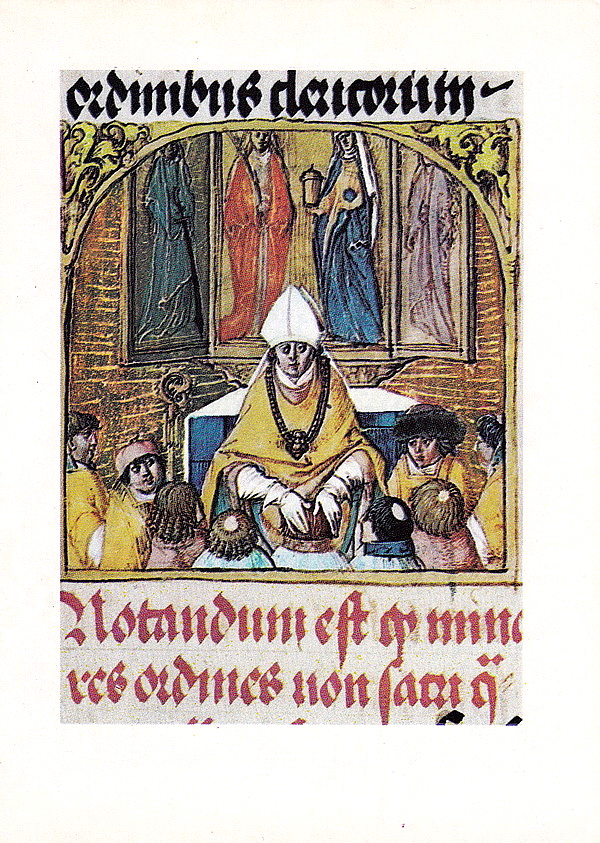 ordinibus clericorum
Notandum est mino
res ordines non sacri